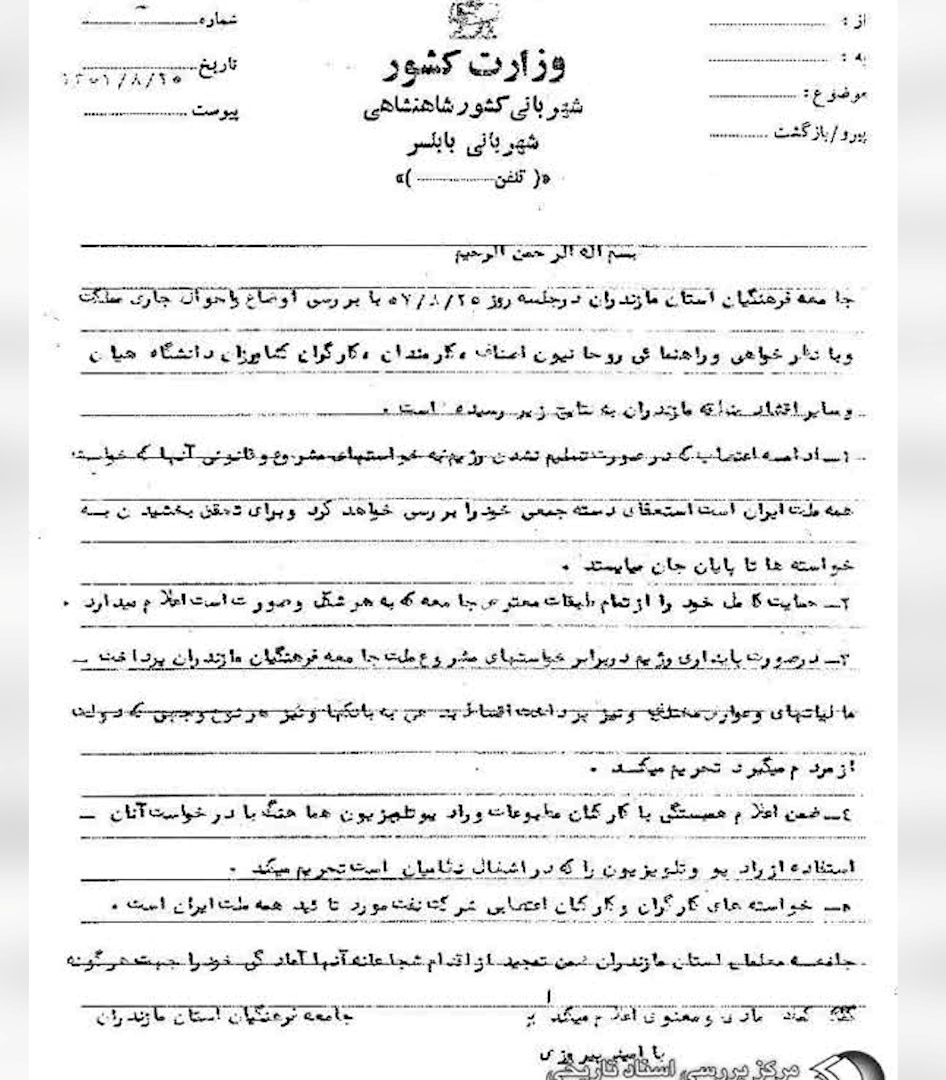 از :
به :
موضوع :
پیرو/بازگشت
وزارت کشور
شهربانی کشور شاهنشاهی
شهربانی بابلسر
«( تلفن )»
شماره
تاریخ
۱۳۵۷/۸/۲۵
پیوست
بسم اله الرحمن الرحیم
جامعه فرهنگیان استان مازندران درجلسه روز ۵۷/۸/۲۵ با بررسی اوضاع واحوال جاری مملکت
وبا نظر خواهی وراهنمائی روحانیون اصناف ، کارمندان ، کارگران کشاورزان دانشگاهیان
وسایر اقشار مازندران به نتایج زیر رسیده است .
۱ــ ادامه اعتصاب که در صورت تسلیم نشدن رژیم به خواستهای مشروع و قانونی آنها که خواست
همه ملت ایران است استعفای دسته جمعی خود را بررسی خواهد کرد وبرای تحقق بخشیدن بــه
خواسته ها تا پایان جان میایستد .
۲ــ حمایت کامل خود را از تمام طبقات معترض جامعه که به هر شکل وصورت است اعلام میدارد .
۳ــ درصورت پایداری رژیم دربرابر خواستهای مشروع ملت جامعه فرهنگیان مازندران پرداخت ــ
مالیاتهای وعوارض مختلف ونیز پرداخت اقساط بدهی به بانکها ونیز هر نوع وجهی که دولت
از مردم میگیرد تحریم میکند .
٤ــ ضمن اعلام همبستگی با کارکنان مطبوعات ورادیو تلویزیون هماهنگ با درخواست آنان ــ
استفاده از رادیو وتلویزیون را که در اشغال نظامیان است تحریم میکند .
۵ــ خواسته های کارگران وکارکنان اعتصابی شرکت نفت مورد تائید همه ملت ایران است .
جامعه معلمان استان مازندران ضمن تمجید از اقدام شجاعانه آنها آمادگی خود را جهت هرگونه
کمک مادی ومعنوی اعلام میکند
جامعه فرهنگیان استان مازندران
با امید پیروزی
مرکز بررسی اسناد تاریخی